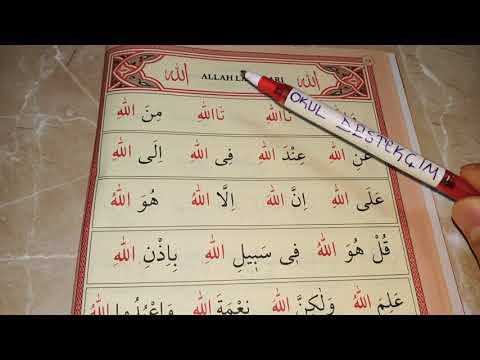 اللّٰه ALLAH اللّٰه
تَااللّٰهِ تَااللّٰهِ مِنَ اللّٰهِ
عَنِ اللّٰهِ عِنْدَ اللّٰهِ فِى اللّٰهِ اِلَى اللّٰهِ
عَلَى اللّٰهِ اِنَّ اللّٰهَ اِلَّا اللّٰهُ هُوَ اللّٰهُ
قُلْ هُوَ اللّٰهُ فٖى سَبٖيلِ اللّٰهِ بِاِذْنِ اللّٰهِ
عَلِمَ اللّٰهُ وَلٰكِنَّ اللّٰهَ نِعْمَةَ اللّٰهِ وَاعْبُدُوا اللّٰهَ
OKUL